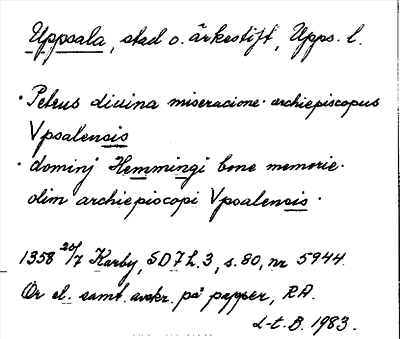 Uppsala, stad o. ärkestift, Upps. l.
· Petrus diuina miseracione · archiepiscopus
Vpsalensis
· dominj Hemmingi bone memorie ·
olim archiepiscopi Vpsalensis ·
1358 20/7 Karby, SD 7 h. 3, s. 80, nr 5944
Or el. samt. avskr. på papper, RA.
L-t. B. 1983.